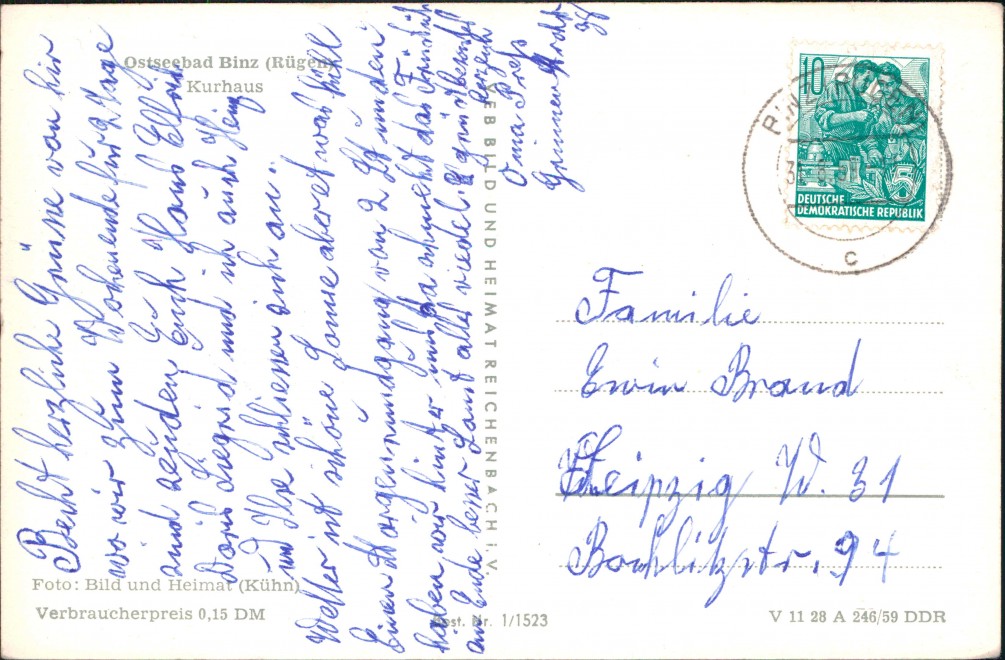 Ostseebad Binz (Rügen)
Kurhaus
Recht herzliche Grüße von hir
wo wir zum Wochenende für 2 Tage
sind senden Euch Hans Elfried
Doris Siegrid und ich auch Heinz
und Ilse schliessen sich an.
Wetter ist schöne Sonne aber etwas kühl
Einen Morgenrundgang von 2 St.
haben wir hinter uns da das Früstük
am Ende besser
Grüsse
Oma
VEB BILD UND HEIMAT REICHENBACH i. V.
10
5
DEUTSCHE
DEMOKRATISCHE REPUBLIK
c
Familie
Erwin Brand
Leipzig W. 31
Bochlitzstr. 94
Foto: Bild und Heimat (Kühn)
Verbraucherpreis 0,15 DM
Best. Nr. 1/1523
V 11 28 A 246/59 DDR